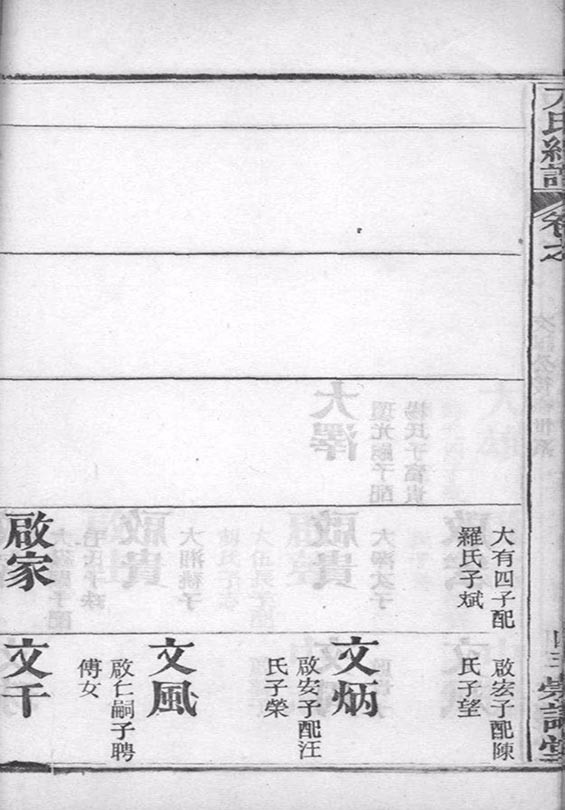 氏
卷之
大有四子配
羅氏子斌
啟家
啟宏子配陳
氏子望
文炳
啟安子配汪
氏子榮
文風
啟仁嗣子聘
傅女
文干